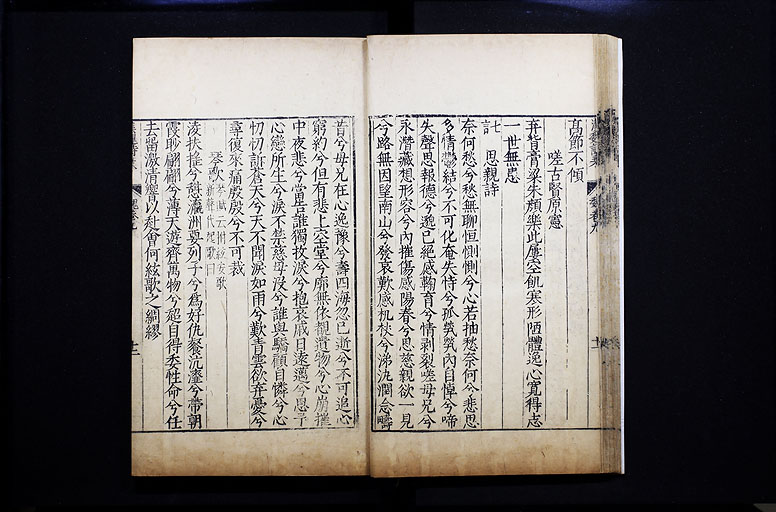 高節不傾
嗟古賢原憲
弃背膏粱朱顏樂此屢空飢寒形陋體逸心寬得志
一世無患
思親詩
奈何愁兮愁無聊恒惻惻兮心若抽愁奈何兮悲思
多情鬱結兮不可化奄失恃兮孤煢煢內自悼兮啼
失聲思報德兮邈已絕感鞠育兮情剥裂嗟母兄兮
永潛藏想形容兮內摧傷感陽春兮思慈親欲一見
兮路無因望南山兮發哀歎感机杖兮涕汍瀾念疇
昔兮母兄在心逸豫兮壽四海忽已逝兮不可追心
窮約兮但有悲上空堂兮廓無依覩遺物兮心崩摧
中夜悲兮當告誰獨抆淚兮抱哀戚日遠邁兮思予
心戀所生兮淚不禁慈母没兮誰與驕顧自憐兮心
忉忉訴蒼天兮天不聞淚如雨兮歎青雲欲弃憂兮
尋復來痛殷殷兮不可裁
琴歌
凌扶摇兮憩瀛洲要列子兮爲好仇餐沆瀣兮帶朝
霞眇翩翩兮薄天遊齊萬物兮超自得委性命兮任
去留激清響以赴會何絃歌之綢繆